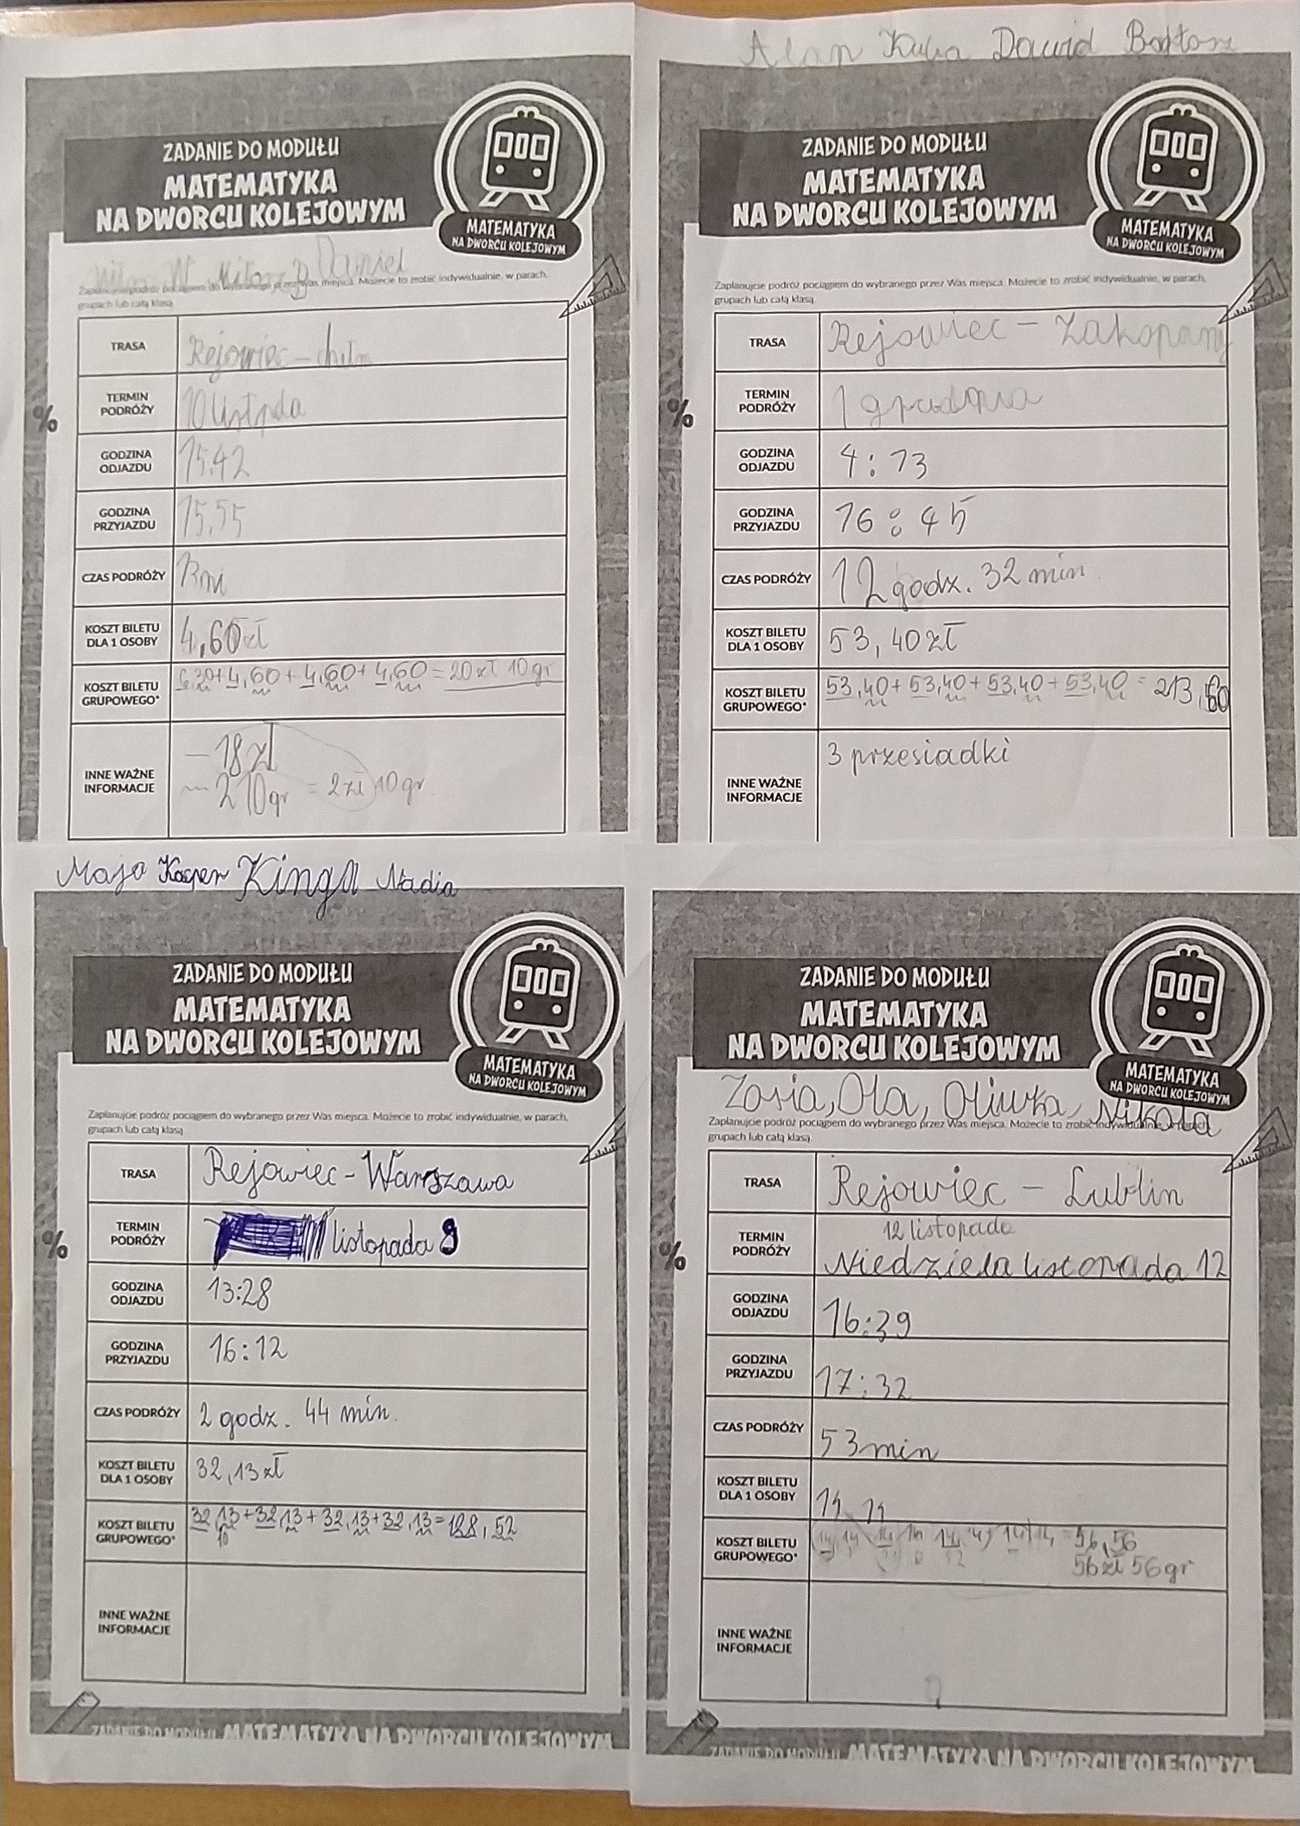 ZADANIE DO MODUŁU
MATEMATYKA
NA DWORCU KOLEJOWYM
MATEMATYKA
NA DWORCU KOLEJOWYM
Daniel
Zaplanujcie podróż pociągiem do wybranego przez Was miejsca. Możecie to zrobić indywidualnie, w parach,
grupach lub całą klasą
%
TRASA Rejowiec - chełm
TERMIN PODRÓŻY 10 listopada
GODZINA ODJAZDU 15:42
GODZINA PRZYJAZDU 15,55
CZAS PODRÓŻY 13
KOSZT BILETU DLA 1 OSOBY 4,60 zł
KOSZT BILETU GRUPOWEGO* 6,30+4,60+4,60+4,60=20 zł 10 gr
INNE WAŻNE INFORMACJE - 18 zł
210gr = 2 zł 10 gr.
Alan Kuba Dawid
ZADANIE DO MODUŁU
MATEMATYKA
NA DWORCU KOLEJOWYM
MATEMATYKA
NA DWORCU KOLEJOWYM
Zaplanujcie podróż pociągiem do wybranego przez Was miejsca. Możecie to zrobić indywidualnie, w parach,
grupach lub całą klasą
%
TRASA Rejowiec - Zakopany
TERMIN PODRÓŻY 1 grudnia
GODZINA ODJAZDU 4:13
GODZINA PRZYJAZDU 16:45
CZAS PODRÓŻY 12 godz. 32 min
KOSZT BILETU DLA 1 OSOBY 53,40 zł
KOSZT BILETU GRUPOWEGO* 53,40+53,40+53,40+53,40=213,60
INNE WAŻNE INFORMACJE 3 przesiadki
Maja Kacper Kinga Nadia
ZADANIE DO MODUŁU
MATEMATYKA
NA DWORCU KOLEJOWYM
MATEMATYKA
NA DWORCU KOLEJOWYM
Zaplanujcie podróż pociągiem do wybranego przez Was miejsca. Możecie to zrobić indywidualnie, w parach,
grupach lub całą klasą
%
TRASA Rejowiec - Warszawa
TERMIN PODRÓŻY listopada 9
GODZINA ODJAZDU 13:28
GODZINA PRZYJAZDU 16:12
CZAS PODRÓŻY 2 godz. 44 min.
KOSZT BILETU DLA 1 OSOBY 32,13 zł
KOSZT BILETU GRUPOWEGO* 32,13+32,13+32,13+32,13=128,52
10
INNE WAŻNE INFORMACJE
ZADANIE DO MODUŁU MATEMATYKA NA DWORCU KOLEJOWYM
ZADANIE DO MODUŁU
MATEMATYKA
NA DWORCU KOLEJOWYM
MATEMATYKA
NA DWORCU KOLEJOWYM
Zosia, Ola, Oliwka, Nikola
Zaplanujcie podróż pociągiem do wybranego przez Was miejsca. Możecie to zrobić indywidualnie, w parach,
grupach lub całą klasą
%
TRASA Rejowiec - Lublin
TERMIN PODRÓŻY 12 listopada
Niedziela listopada 12
GODZINA ODJAZDU 16:39
GODZINA PRZYJAZDU 17:32
CZAS PODRÓŻY 53 min
KOSZT BILETU DLA 1 OSOBY 14,14
KOSZT BILETU GRUPOWEGO* = 56,56
56 zł 56 gr
INNE WAŻNE INFORMACJE
ZADANIE DO MODUŁU MATEMATYKA NA DWORCU KOLEJOWYM